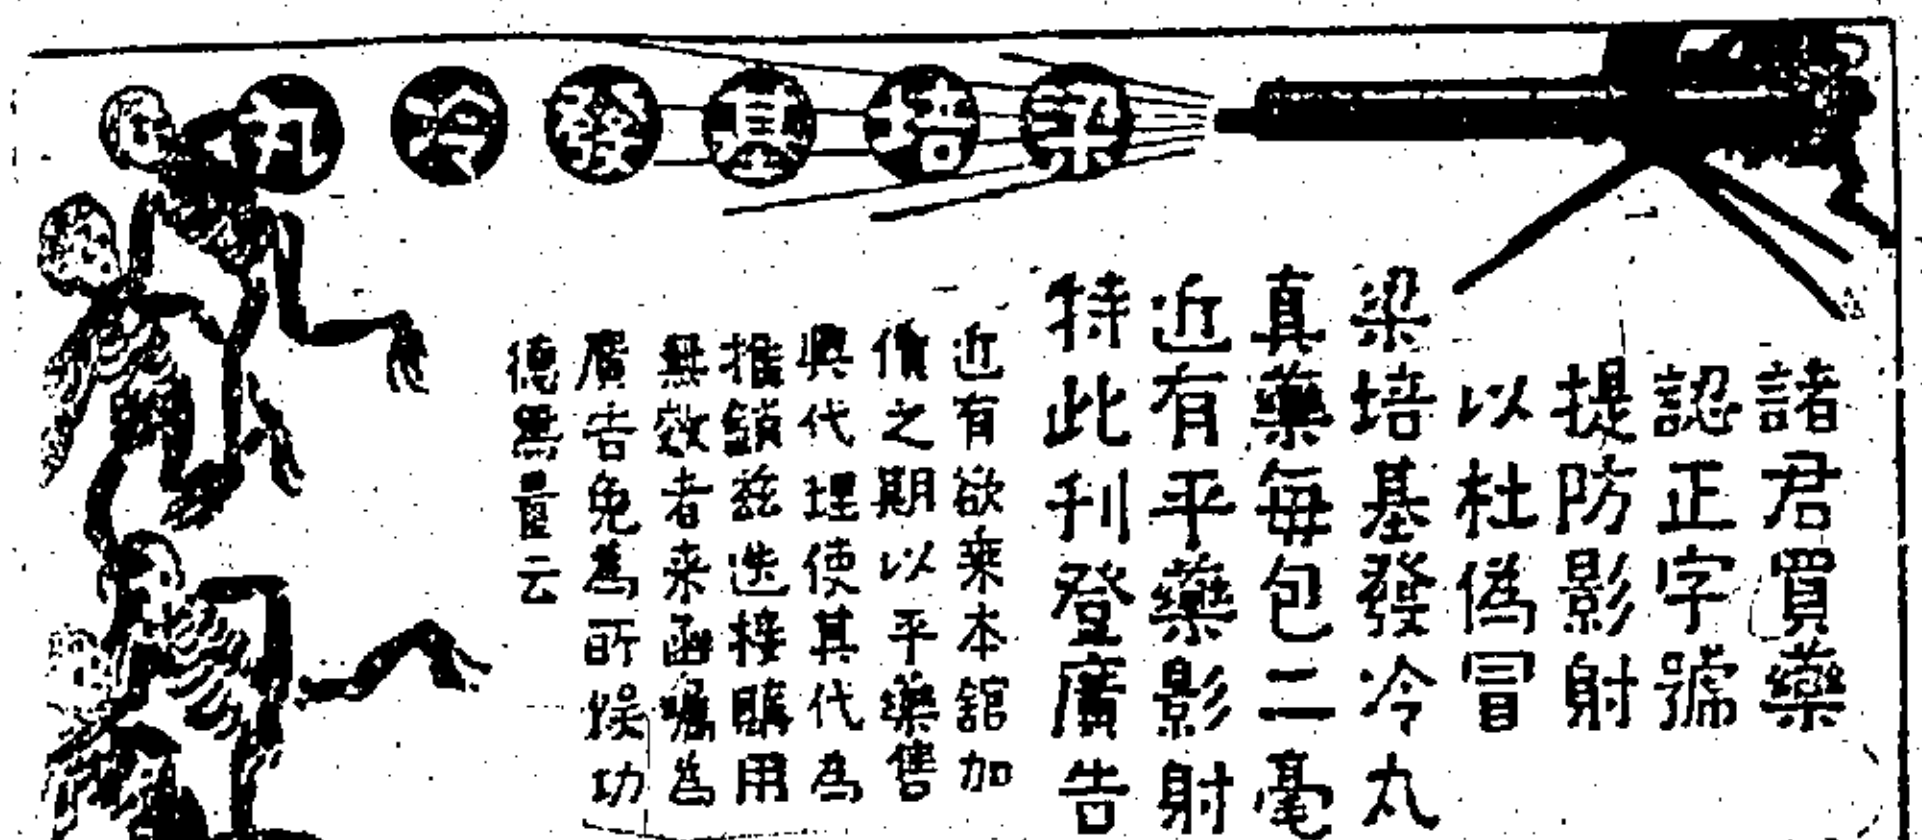 梁培基發冷丸
諸君買藥
認正字號
提防影射
以杜偽冒
梁培基發冷丸
真藥每包二毫
近有平藥影射
特此刊登廣告
近有欲乘本舘加
價之期以平藥售
與代理使其代為
推銷茲迭接購用
無效者來函囑為
廣告免為所悮功
德無量云